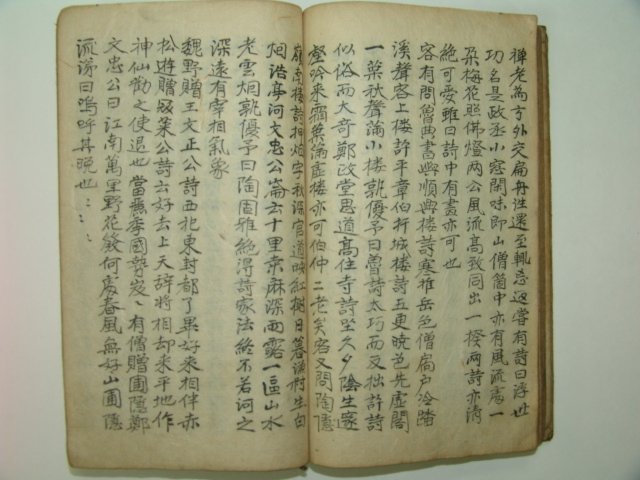 禅老為方外交扁舟往還至輒忘迎嘗有詩曰浮世
功名是政丞小窓閑味即山僧箇中亦有風流處一
朶梅花照佛燈两公風流高致同出一揆两詩亦清
絶可愛雖曰詩中有畫亦可也
客有問魯典書嶼順興楼詩寒堆岳色僧扃户冷踏
溪聲客上楼許平章伯扞城楼詩五更曉色先虚閣
一葉秋聲滿小楼孰優予曰魯詩太巧而反拙許詩
似俗而大奇鄭政堂思道髙住寺詩坐久夕陰生邃
壑吟来霜葉滿虚楼亦可伯仲二老矣客又問陶隱
嶺南楼詩押烟字秋深官道映紅樹日暮漁村生白
烟浩亭河文忠公崙云十里桒麻深雨露一區山水
老雲烟孰優予曰陶固雅絶得詩家法終不若河之
深遠有宰相氣象
魏野贈王文正公詩西祀東封都了畢好来相伴亦
松遊贈冦莱公詩云好去上天辞將相却来平地作
神仙勸之使退也當麗季國勢岌〻有僧贈圃隱鄭
文忠公曰江南萬里野花發何處春風無好山圃隱
流涕曰嗚呼其晚也〻〻